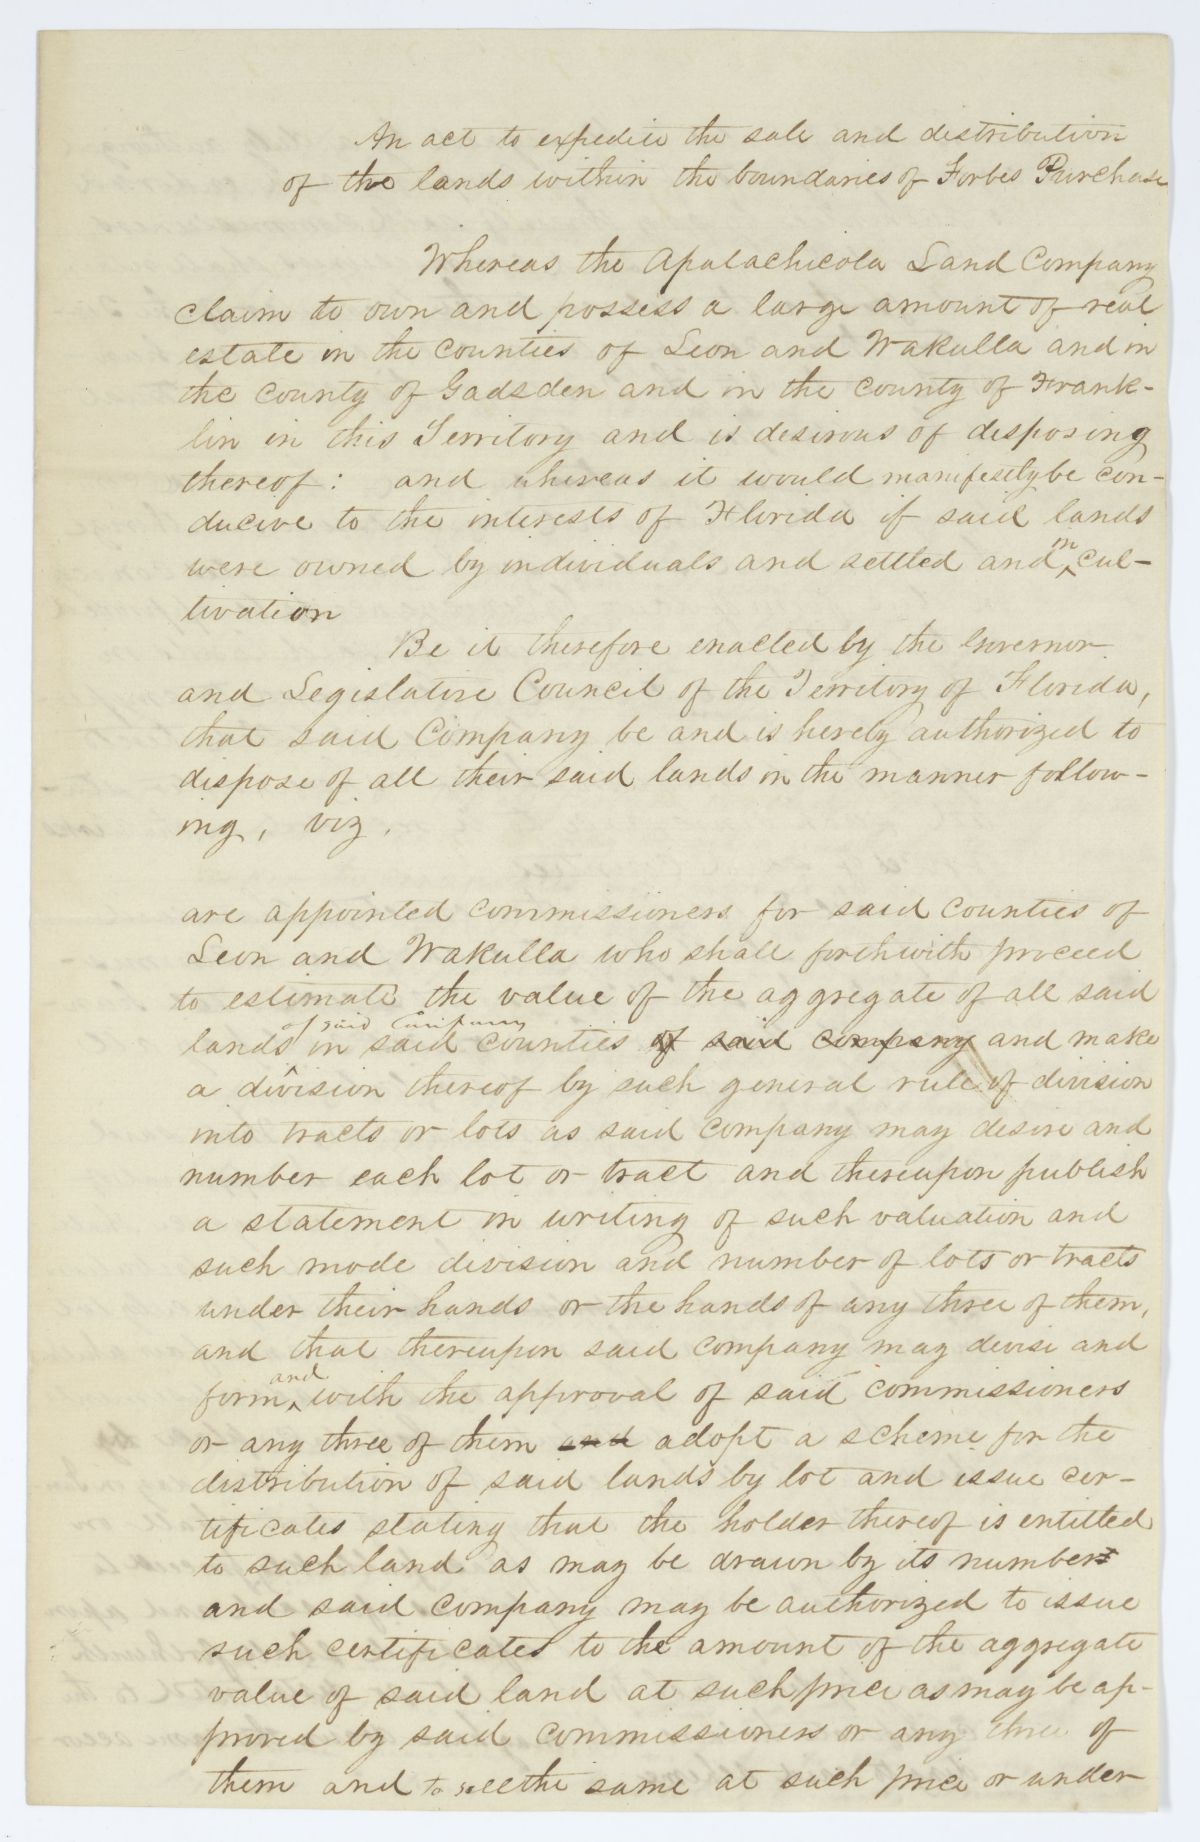 An act to expedite the sale and distribution
of the lands within the boundaries of Forbes Purchase
Whereas the Apalachicola Land Company
claim to own and possess a large amount of real
estate in the counties of Leon and Wakulla and in
the county of Gadsden and in the county of Frank-
lin in this Territory and is desirous of disposing
thereof: and whereas it would manifestly be con-
ducive to the interests of Florida if said lands
were owned by individuals and settled and in cul-
tivation
Be it therefore enacted by the Governor
and Legislative Council of the Territory of Florida,
that said Company be and is hereby authorized to
dispose of all their said lands in the manner follow-
ing, viz.
are appointed commissioners for said counties of
Leon and Wakulla who shall forthwith proceed
to estimate the value of the aggregate of all said
lands of said Company in said counties of said company and make
a division thereof by such general rule of division
into tracts or lots as said company may desire and
number each lot or tract and thereupon publish
a statement in writing of such valuation and
such mode division and number of lots or tracts
under their hands or the hands of any three of them,
and that thereupon said company may devise and
form and with the approval of said commissioners
or any three of them and adopt a scheme for the
distribution of said lands by lot and issue cer-
tificates stating that the holder thereof is entitled
to such land as may be drawn by its number
and said company may be authorized to issue
such certificates to the amount of the aggregate
value of said land at such price as may be ap-
proved by said commissioners or any three of
them and to sell the same at such price or under